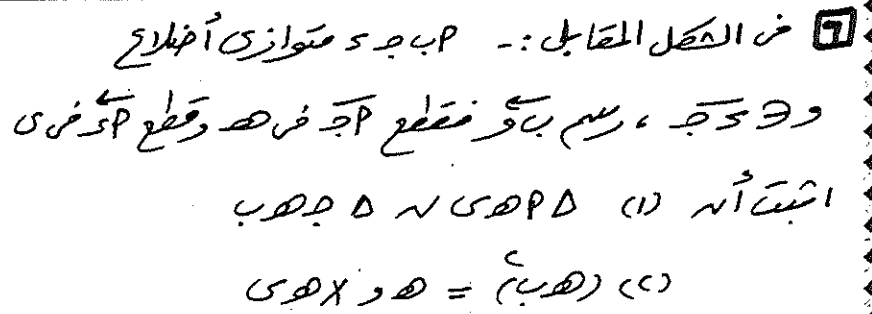 ٦ فى الشكل المقابل :- P ب ج د متوازى أضلاع
و ∈ د ج ، رسم ب و فقطع P ج فى هـ وقطع P د فى ى
اثبت أن (١) Δ P هـ ى ~ Δ ج هـ ب
(٢) (هـ ب)٢ = هـ و × هـ ى